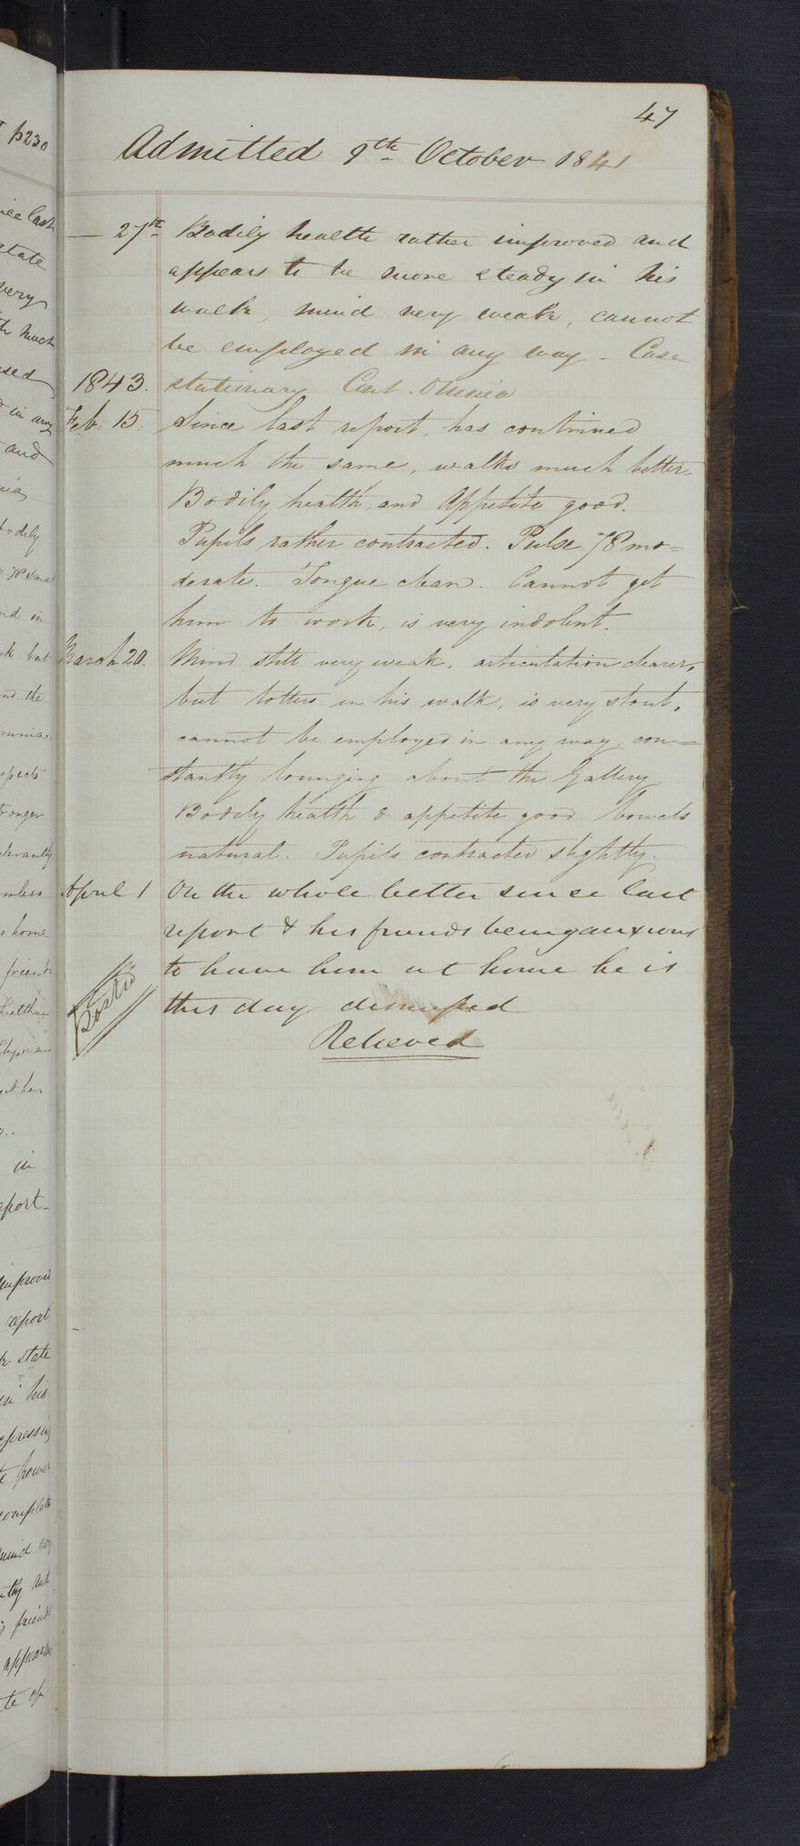 47
Admitted 9th October 1841
— 27th Bodily health rather improved and
appears to be more steady in his
walk, mind very weak, cannot
be employed in any way - Case
1843. stationary Cont. Omnia
Feb. 15. Since last report, has continued
much the same, walks much better.
Bodily health, and Appetite good.
Pupils rather contracted. Pulse 78 mo=
derate. Tongue clean. Cannot get
him to work, is very indolent.
March 20. Mind still very weak, articulation clearer,
but totters in his walk, is very stout,
cannot be employed in any way, con=
stantly lounging about the Gallery
Bodily health & appetite good bowels
natural. Pupils contracted slightly.
April 1 On the whole better since last
report & his friends being anxious
to have him at home he is
this day dismissed
Relieved
p230
last
state
very
much
in any
and
bodily
in
but
the
friends
in
report
improved
report
state
in his
his friends